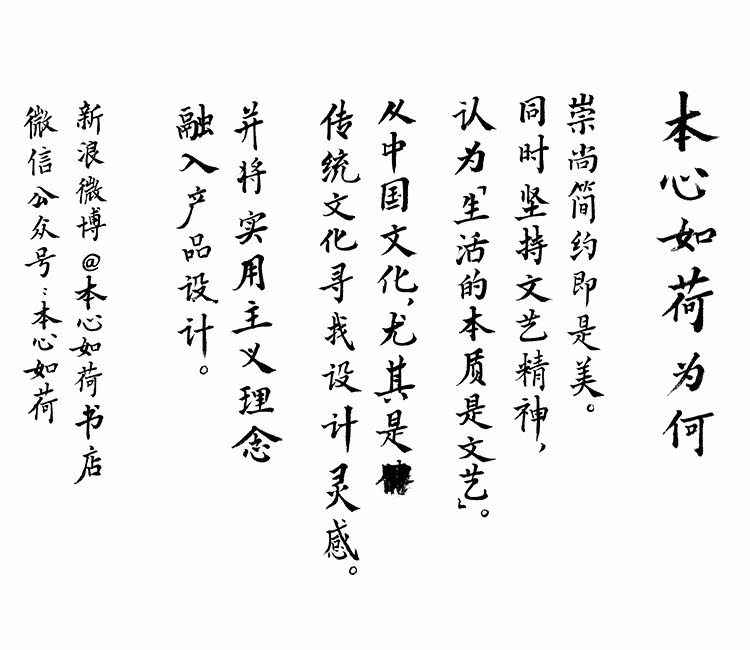 本心如荷为何
崇尚简约即是美。
同时坚持文艺精神，
认为「生活的本质是文艺」。
从中国文化，尤其是
传统文化寻找设计灵感。
并将实用主义理念
融入产品设计。
新浪微博@本心如荷书店
微信公众号：本心如荷